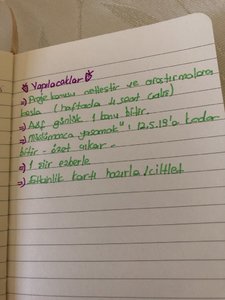 Yapılacaklar
=> Proje konunu netleştir ve araştırmalara
başla (haftada 4 saat çalış)
=> Akif günlük 1 konu bitir.
=> "Müslümanca yaşamak" ı 12.5.19'a kadar
bitir - özet çıkar.
=> 1 şiir ezberle
=> Etkinlik kartı hazırla/ciltlet